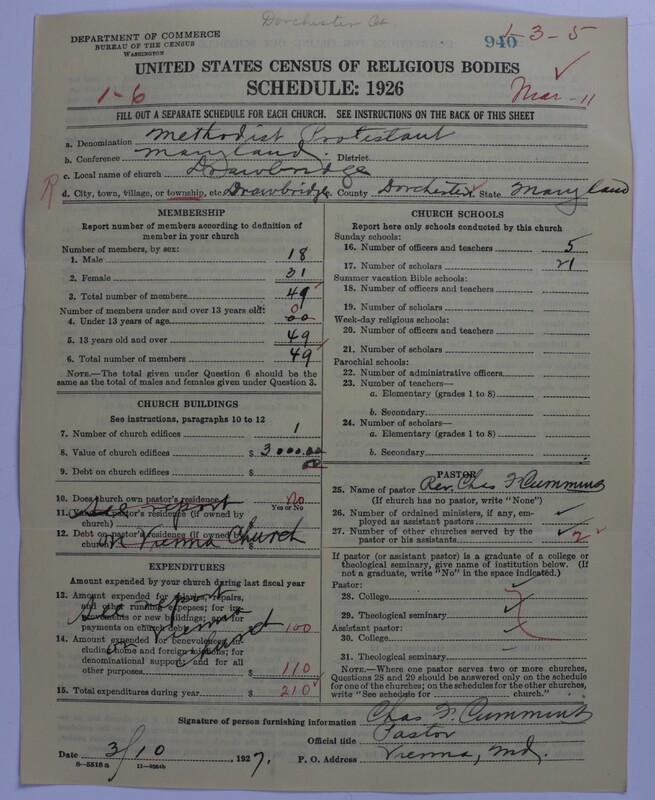 Dorchester Co.
DEPARTMENT OF COMMERCE
BUREAU OF THE CENSUS
WASHINGTON
940
1-3-5
UNITED STATES CENSUS OF RELIGIOUS BODIES
SCHEDULE: 1926
1-6
Mar-11
FILL OUT A SEPARATE SCHEDULE FOR EACH CHURCH. SEE INSTRUCTIONS ON THE BACK OF THIS SHEET
a. Denomination Methodist Protestant
b. Conference Maryland District
c. Local name of church Drawbridge
R d. City, town, village, or township, etc. Drawbridge County Dorchester State Maryland
MEMBERSHIP
Report number of members according to definition of
member in your church
Number of members, by sex:
1. Male 18
2. Female 31
3. Total number of members 49
Number of members under and over 13 years old:
4. Under 13 years of age 0
5. 13 years old and over 49
6. Total number of members 49
NOTE.—The total given under Question 6 should be
same as the total of males and females given under Question 3.
CHURCH BUILDINGS
See instructions, paragraphs 10 to 12
7. Number of church edifices 1
8. Value of church edifices $ 3000.00
9. Debt on church edifices $ 00
10. Does church own pastor's residence No
Yes or No
11. Value of pastor's residence (if owned by
church) $
12. Debt on pastor's residence (if owned by
church) $
See report
on Vienna Church
EXPENDITURES
Amount expended by your church during last fiscal year
13. Amount expended for salaries, repairs,
and other running expenses; for im-
provements or new buildings; and for
payments on church debt $ 100
14. Amount expended for benevolences, in-
cluding home and foreign missions; for
denominational support; and for all
other purposes $ 110
See report
on Vienna
Church
15. Total expenditures during year $ 210
CHURCH SCHOOLS
Report here only schools conducted by this church
Sunday schools:
16. Number of officers and teachers 5
17. Number of scholars 21
Summer vacation Bible schools:
18. Number of officers and teachers
19. Number of scholars
Week-day religious schools:
20. Number of officers and teachers
21. Number of scholars
Parochial schools:
22. Number of administrative officers
23. Number of teachers—
a. Elementary (grades 1 to 8)
b. Secondary
24. Number of scholars—
a. Elementary (grades 1 to 8)
b. Secondary
PASTOR
25. Name of pastor Rev. Chas F Cummins
(If church has no pastor, write "None")
26. Number of ordained ministers, if any, em-
ployed as assistant pastors
27. Number of other churches served by the
pastor or his assistants 2
If pastor (or assistant pastor) is a graduate of a college or
theological seminary, give name of institution below. (If
not a graduate, write "No" in the space indicated.)
Pastor:
28. College
29. Theological seminary
Assistant pastor:
30. College
31. Theological seminary
NOTE.—Where one pastor serves two or more churches,
Questions 28 and 29 should be answered only on the schedule
for one of the churches; on the schedules for the other churches,
write "See schedule for church."
Signature of person furnishing information Chas F. Cummins
Official title Pastor
Date 3/10, 1927. P. O. Address Vienna, Md.
8—5518 a